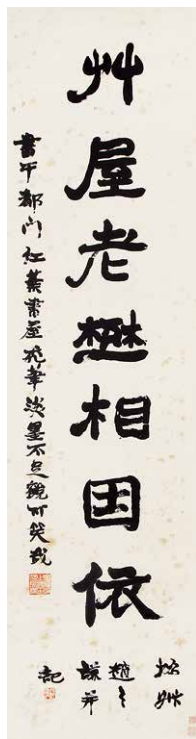 艸屋老懋相因依
書于都門紅葉書屋禿筆淡墨不足觀可笑
撝叔
趙之
謙并
記